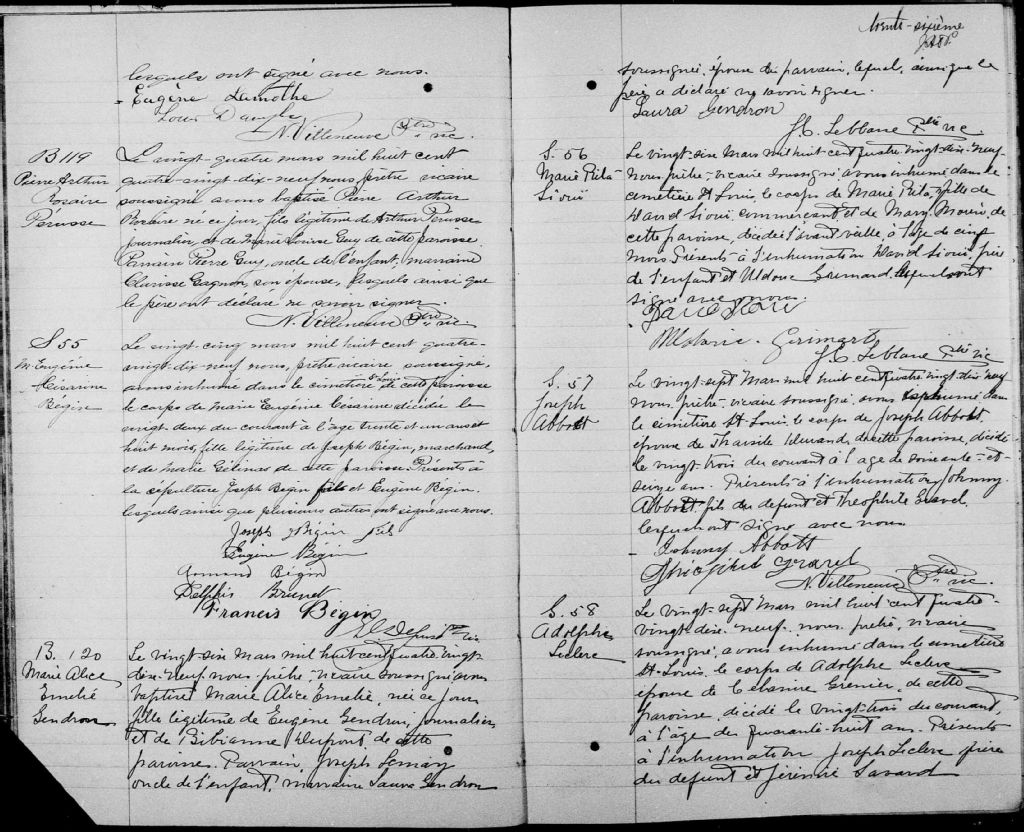 lesquels ont signé avec nous.
Eugène Lamothe
Louis
N. Villeneuve Ptre vic.
B 119
Pierre Arthur
Rosaire
Pérusse
Le vingt-quatre mars mil huit cent
quatre-vingt-dix-neuf nous prêtre vicaire
soussigné avons baptisé Pierre Arthur
Rosaire né ce jour, fils légitime de Arthur Pérusse
journalier, et de Marie Louise Guy de cette paroisse.
Parrain Pierre Guy, oncle de l'enfant, marraine
Clarisse Gagnon, son épouse, lesquels ainsi que
le père ont déclaré ne savoir signer.
N. Villeneuve Ptre vic.
S 55
M. Eugénie
Césarine
Bégin
Le vingt-cinq mars mil huit cent quatre-
vingt-dix-neuf nous, prêtre vicaire soussigné,
avons inhumé dans le cimetière St Louis de cette paroisse
le corps de Marie Eugénie Césarine décédée le
vingt deux du courant à l'âge trente et un ans et
huit mois, fille légitime de Joseph Bégin, marchand,
et de Marie Gélinas de cette paroisse. Présents à
la sépulture Joseph Bégin fils et Eugène Bégin.
lesquels ainsi que plusieurs autres ont signé avec nous.
Joseph Bégin fils
Eugène Bégin
Armand Bégin
Delphis Brunet
Francis Bégin
B. 120
Marie Alice
Emelié
Gendron
Le vingt-six Mars mil huit cent quatre vingt-
dix-neuf, nous prêtre, vicaire soussigné avons
baptisé Marie Alice Emelié, née ce jour
fille légitime de Eugène Gendron, journalier
et de Bibianne Dupont de cette
paroisse. Parrain, Joseph Lemay
oncle de l'enfant, marraine Laura Gendron
trente-sixième
soussignée, épouse du parrain, lequel, ainsi que le
père a déclaré ne savoir signer.
Laura Gendron
Leblanc Ptre vic.
S. 56
Marie Rita
Sioui
Le vingt-six Mars mil huit cent quatre vingt-dix-neuf
nous prêtre-vicaire soussigné, avons inhumé dans le
cimetière St Louis, le corps de Marie Rita, fille de
David Sioui commerçant et de Mary Morin, de
cette paroisse, décédée l'avant veille à l'âge de cinq
mois. Présents à l'inhumation David Sioui, père
de l'enfant et lesquels ont
signé avec nous.
Leblanc Ptre vic
S. 57
Joseph
Abbott
Le vingt-sept Mars mil huit cent quatre vingt dix neuf
nous prêtre, vicaire soussigné, avons inhumé dans
le cimetière St Louis, le corps de Joseph Abbott
époux de Tharsile de cette paroisse, décédé
le vingt-trois du courant à l'âge de soixante-et-
seize ans. Présents à l'inhumation Johnny
Abbott fils du défunt et Théophile Gravel.
lesquels ont signé avec nous
Johnny Abbott
Théophile Gravel
N. Villeneuve Ptre vic.
S. 58
Adolphe
Leclerc
Le vingt-sept Mars mil huit cent quatre-
vingt-dix-neuf, nous prêtre, vicaire
soussigné, avons inhumé dans le cimetière
St-Louis, le corps de Adolphe Leclerc
époux de Grenier, de cette
paroisse, décédé le vingt-trois du courant,
à l'âge de quarante-huit ans. Présents
à l'inhumation Joseph Leclerc frère
du défunt et Jérémie Savard